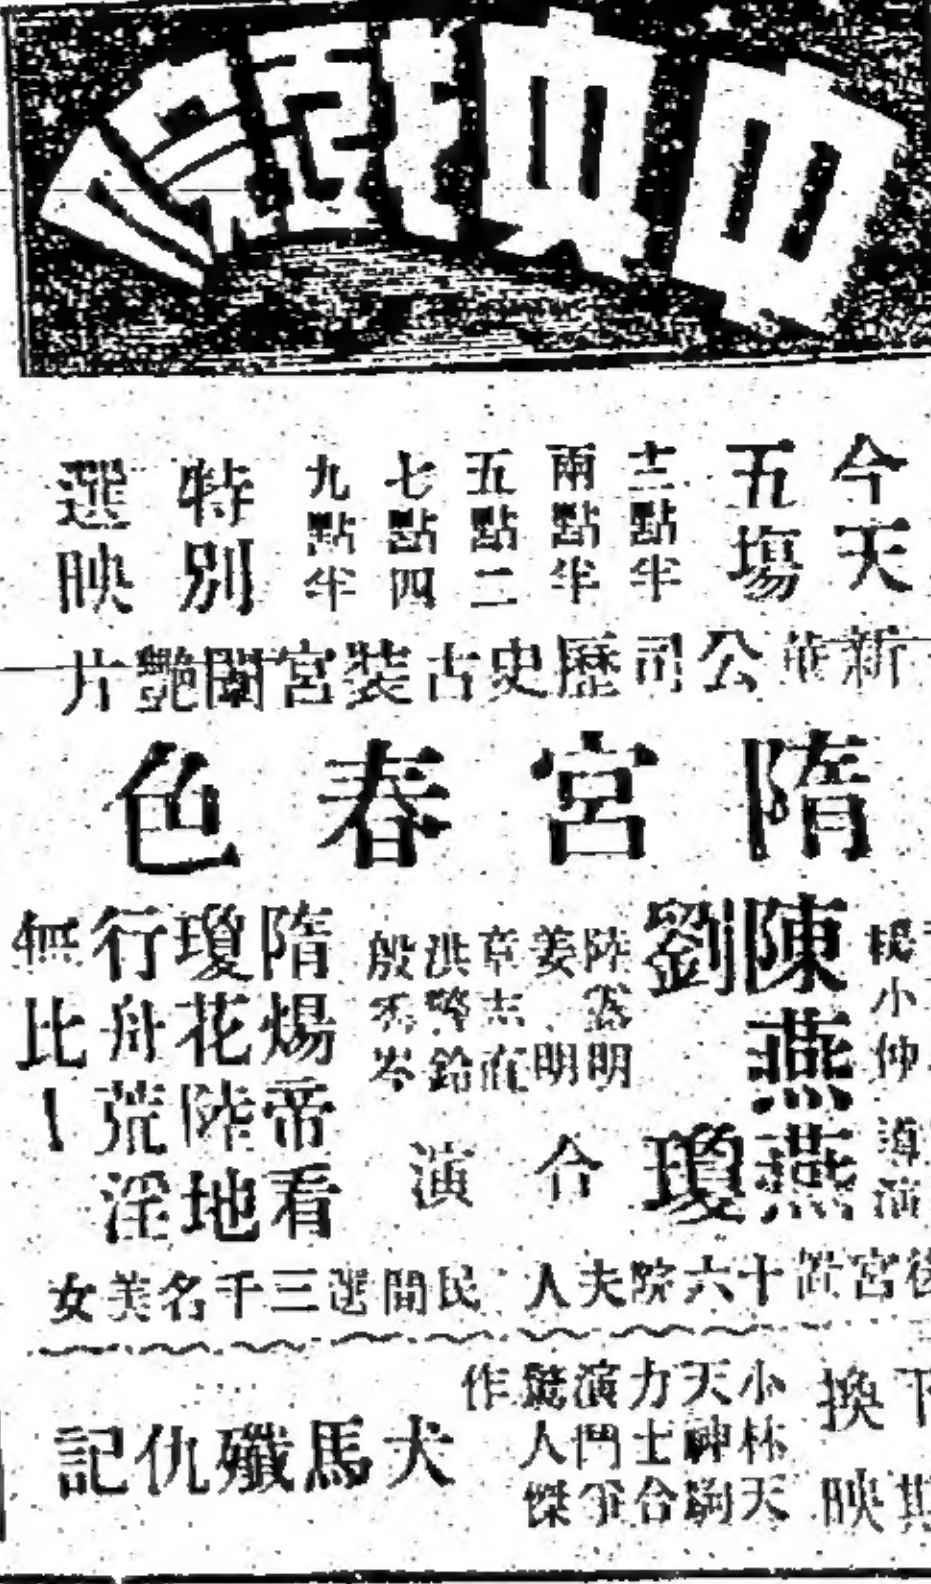 今天
五場
十二點半
兩點半
五點二
七點四
九點半
特別
選映
新華公司歷史古裝宮闈艷片
隋宮春色
楊小仲
導演
陳燕燕
劉瓊
陸露明
姜明
章志直
洪警鈴
殷秀岑
合演
隋煬帝看
瓊花陸地
行舟荒淫
無比!
後宮置十六院夫人
民間選三千名美女
下期
換映
小林天
天神駒
力士合
演鬥爭
驚人傑
作
犬馬殲仇記